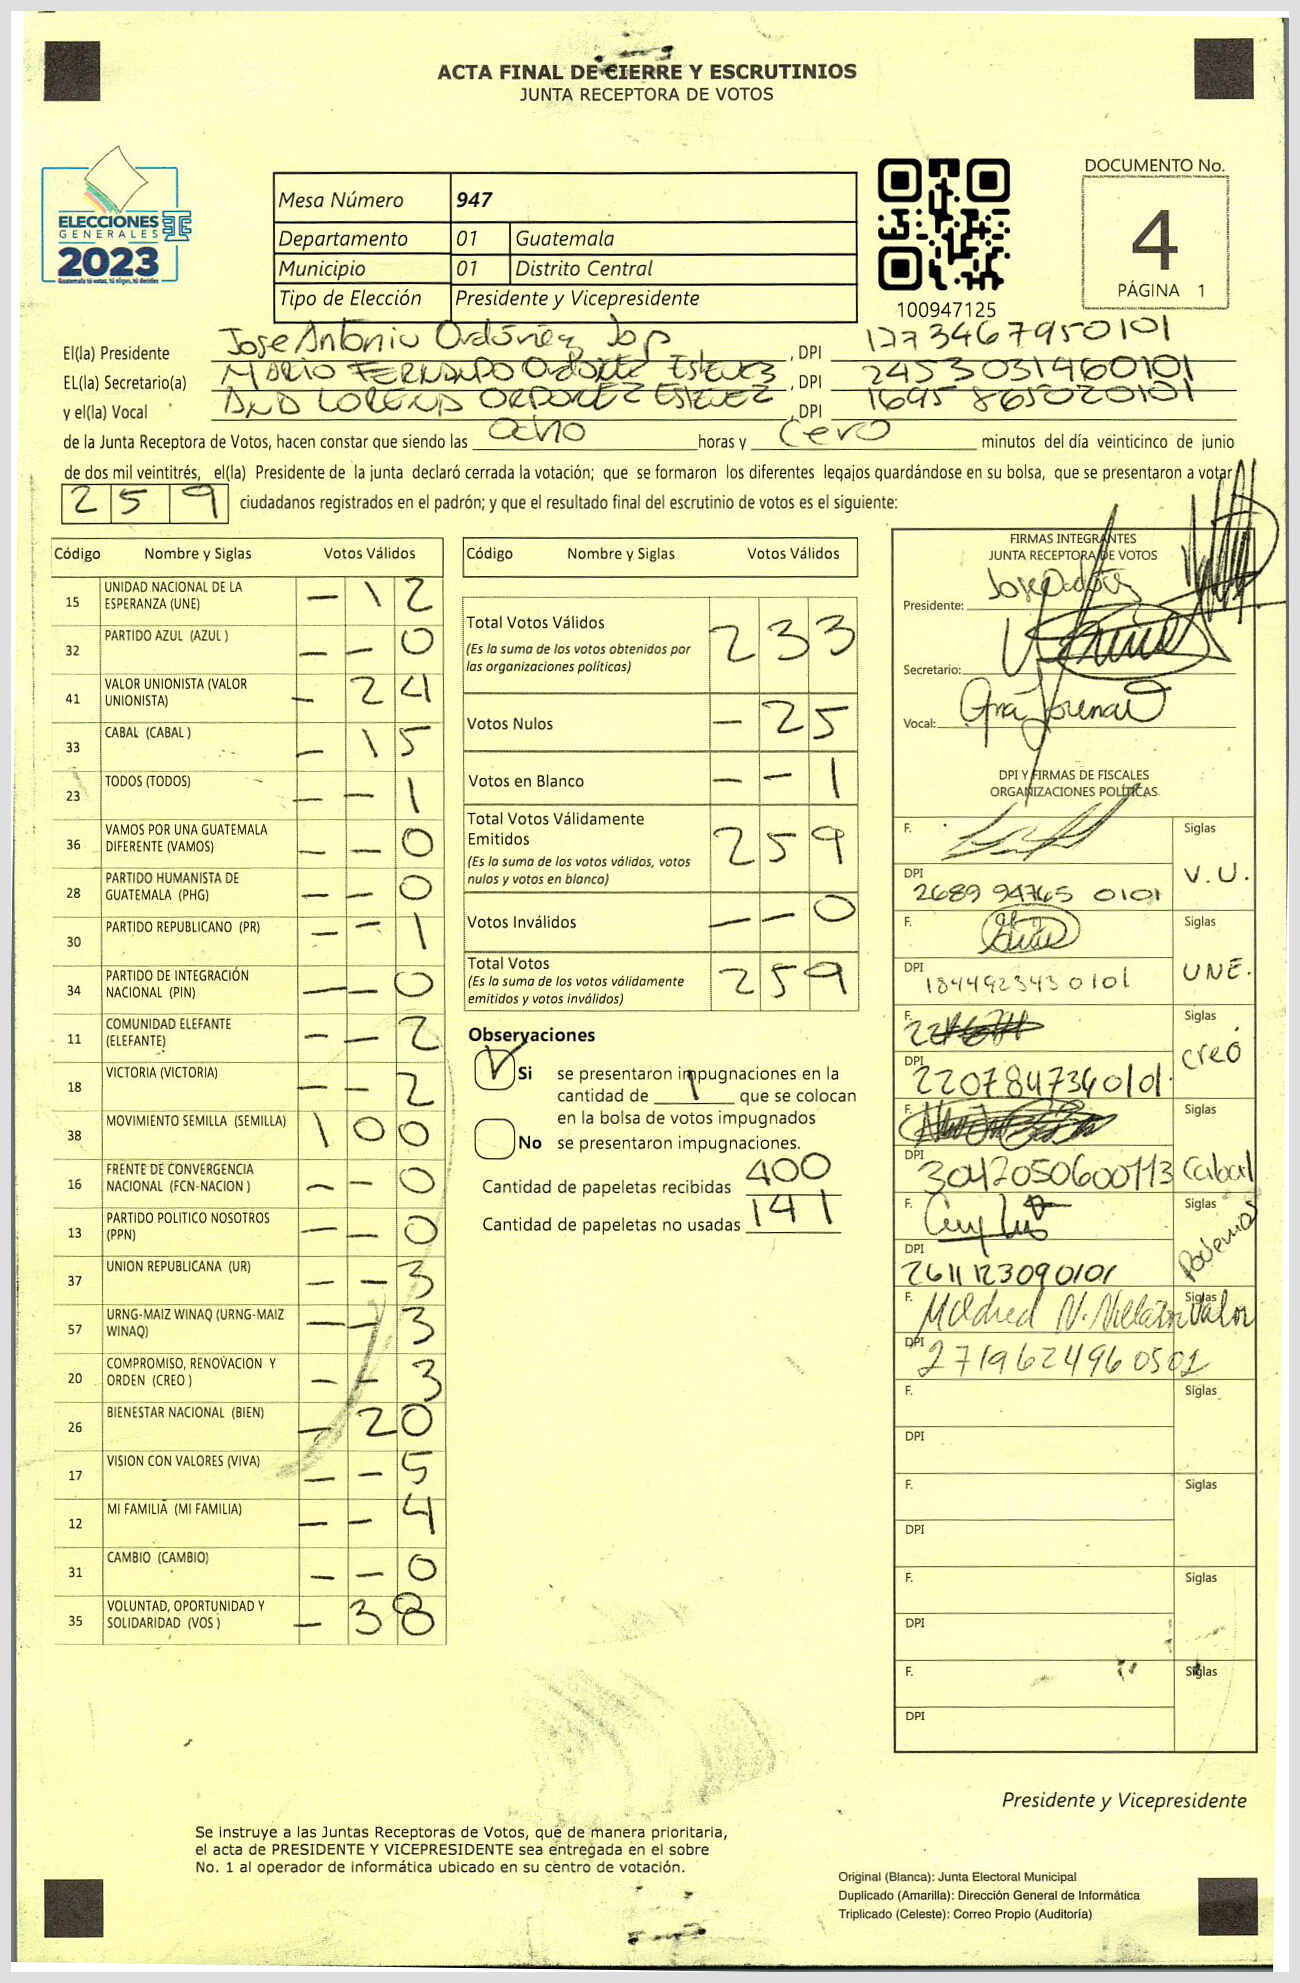 ACTA FINAL DE CIERRE Y ESCRUTINIOS
JUNTA RECEPTORA DE VOTOS
ELECCIONES
GENERALES
2023
Guatemala tú votas, tú eliges, tú decides
Mesa Número 947
Departamento 01 Guatemala
Municipio 01 Distrito Central
Tipo de Elección Presidente y Vicepresidente
100947125
DOCUMENTO No.
4
PÁGINA 1
El(la) Presidente Jose Antonio Ordóñez , DPI 1273467950101
EL(la) Secretario(a) MARIO FERNANDO Ordoñez Estevez , DPI 2453031460101
y el(la) Vocal ANA LORENA ORDOÑEZ ESTEVEZ , DPI 1695865020101
de la Junta Receptora de Votos, hacen constar que siendo las ocho horas y cero minutos del día veinticinco de junio
de dos mil veintitrés, el(la) Presidente de la junta declaró cerrada la votación; que se formaron los diferentes legajos guardándose en su bolsa, que se presentaron a votar
259 ciudadanos registrados en el padrón; y que el resultado final del escrutinio de votos es el siguiente:
Código Nombre y Siglas Votos Válidos
15 UNIDAD NACIONAL DE LA ESPERANZA (UNE) - 1 2
32 PARTIDO AZUL (AZUL ) - - 0
41 VALOR UNIONISTA (VALOR UNIONISTA) - 2 4
33 CABAL (CABAL ) - 1 5
23 TODOS (TODOS) - - 1
36 VAMOS POR UNA GUATEMALA DIFERENTE (VAMOS) - - 0
28 PARTIDO HUMANISTA DE GUATEMALA (PHG) - - 0
30 PARTIDO REPUBLICANO (PR) - - 1
34 PARTIDO DE INTEGRACIÓN NACIONAL (PIN) - - 0
11 COMUNIDAD ELEFANTE (ELEFANTE) - - 2
18 VICTORIA (VICTORIA) - - 2
38 MOVIMIENTO SEMILLA (SEMILLA) 1 0 0
16 FRENTE DE CONVERGENCIA NACIONAL (FCN-NACION ) - - 0
13 PARTIDO POLITICO NOSOTROS (PPN) - - 0
37 UNION REPUBLICANA (UR) - - 3
57 URNG-MAIZ WINAQ (URNG-MAIZ WINAQ) - - 3
20 COMPROMISO, RENOVACION Y ORDEN (CREO ) - - 3
26 BIENESTAR NACIONAL (BIEN) - 2 0
17 VISION CON VALORES (VIVA) - - 5
12 MI FAMILIA (MI FAMILIA) - - 4
31 CAMBIO (CAMBIO) - - 0
35 VOLUNTAD, OPORTUNIDAD Y SOLIDARIDAD (VOS ) - 3 8
Código Nombre y Siglas Votos Válidos
Total Votos Válidos 2 3 3
(Es la suma de los votos obtenidos por
las organizaciones políticas)
Votos Nulos - 2 5
Votos en Blanco - - 1
Total Votos Válidamente
Emitidos 2 5 9
(Es la suma de los votos válidos, votos
nulos y votos en blanco)
Votos Inválidos - - 0
Total Votos 2 5 9
(Es la suma de los votos válidamente
emitidos y votos inválidos)
Observaciones
Si se presentaron impugnaciones en la
cantidad de 1 que se colocan
en la bolsa de votos impugnados
No se presentaron impugnaciones.
Cantidad de papeletas recibidas 400
Cantidad de papeletas no usadas 141
FIRMAS INTEGRANTES
JUNTA RECEPTORA DE VOTOS
Presidente:
Secretario:
Vocal: Ana Lorena
DPI Y FIRMAS DE FISCALES
ORGANIZACIONES POLÍTICAS
F. Siglas
DPI 2689 94765 0101 V.U.
F. Siglas
DPI 1844923430101 UNE.
F. Siglas
DPI 2207847340101. creo
F. Siglas
DPI 3042050600113 Cabal
F. Siglas
DPI 2611123090101 Podemos
F. Mildred N. Siglas Valor
DPI 2719624960501
F. Siglas
DPI
F. Siglas
DPI
F. Siglas
DPI
F. Siglas
DPI
Presidente y Vicepresidente
Se instruye a las Juntas Receptoras de Votos, que de manera prioritaria,
el acta de PRESIDENTE Y VICEPRESIDENTE sea entregada en el sobre
No. 1 al operador de informática ubicado en su centro de votación.
Original (Blanca): Junta Electoral Municipal
Duplicado (Amarilla): Dirección General de Informática
Triplicado (Celeste): Correo Propio (Auditoría)